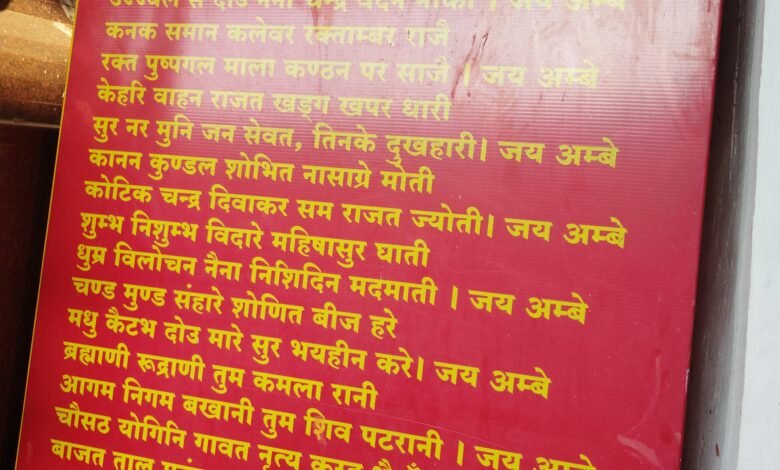 उज्ज्वल से दोउ नैना चन्द्र वदन नीको । जय अम्बे
कनक समान कलेवर रक्ताम्बर राजै
रक्त पुष्पगल माला कण्ठन पर साजै । जय अम्बे
केहरि वाहन राजत खड्ग खपर धारी
सुर नर मुनि जन सेवत, तिनके दुखहारी। जय अम्बे
कानन कुण्डल शोभित नासाग्रे मोती
कोटिक चन्द्र दिवाकर सम राजत ज्योती। जय अम्बे
शुम्भ निशुम्भ विदारे महिषासुर घाती
धुम्र विलोचन नैना निशिदिन मदमाती । जय अम्बे
चण्ड मुण्ड संहारे शोणित बीज हरे
मधु कैटभ दोउ मारे सुर भयहीन करे। जय अम्बे
ब्रह्माणी रूद्राणी तुम कमला रानी
आगम निगम बखानी तुम शिव पटरानी । जय अम्बे
चौसठ योगिनि गावत नृत्य करत
बाजत ताल